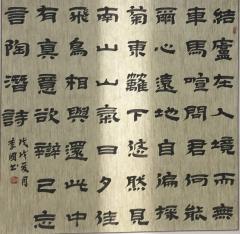 結廬在人境而無
車馬喧問君何能
爾心遠地自偏採
菊東籬下悠然見
南山山氣日夕佳
飛鳥相與還此中
有真意欲辯已忘
言陶潛詩
戊戌夏月